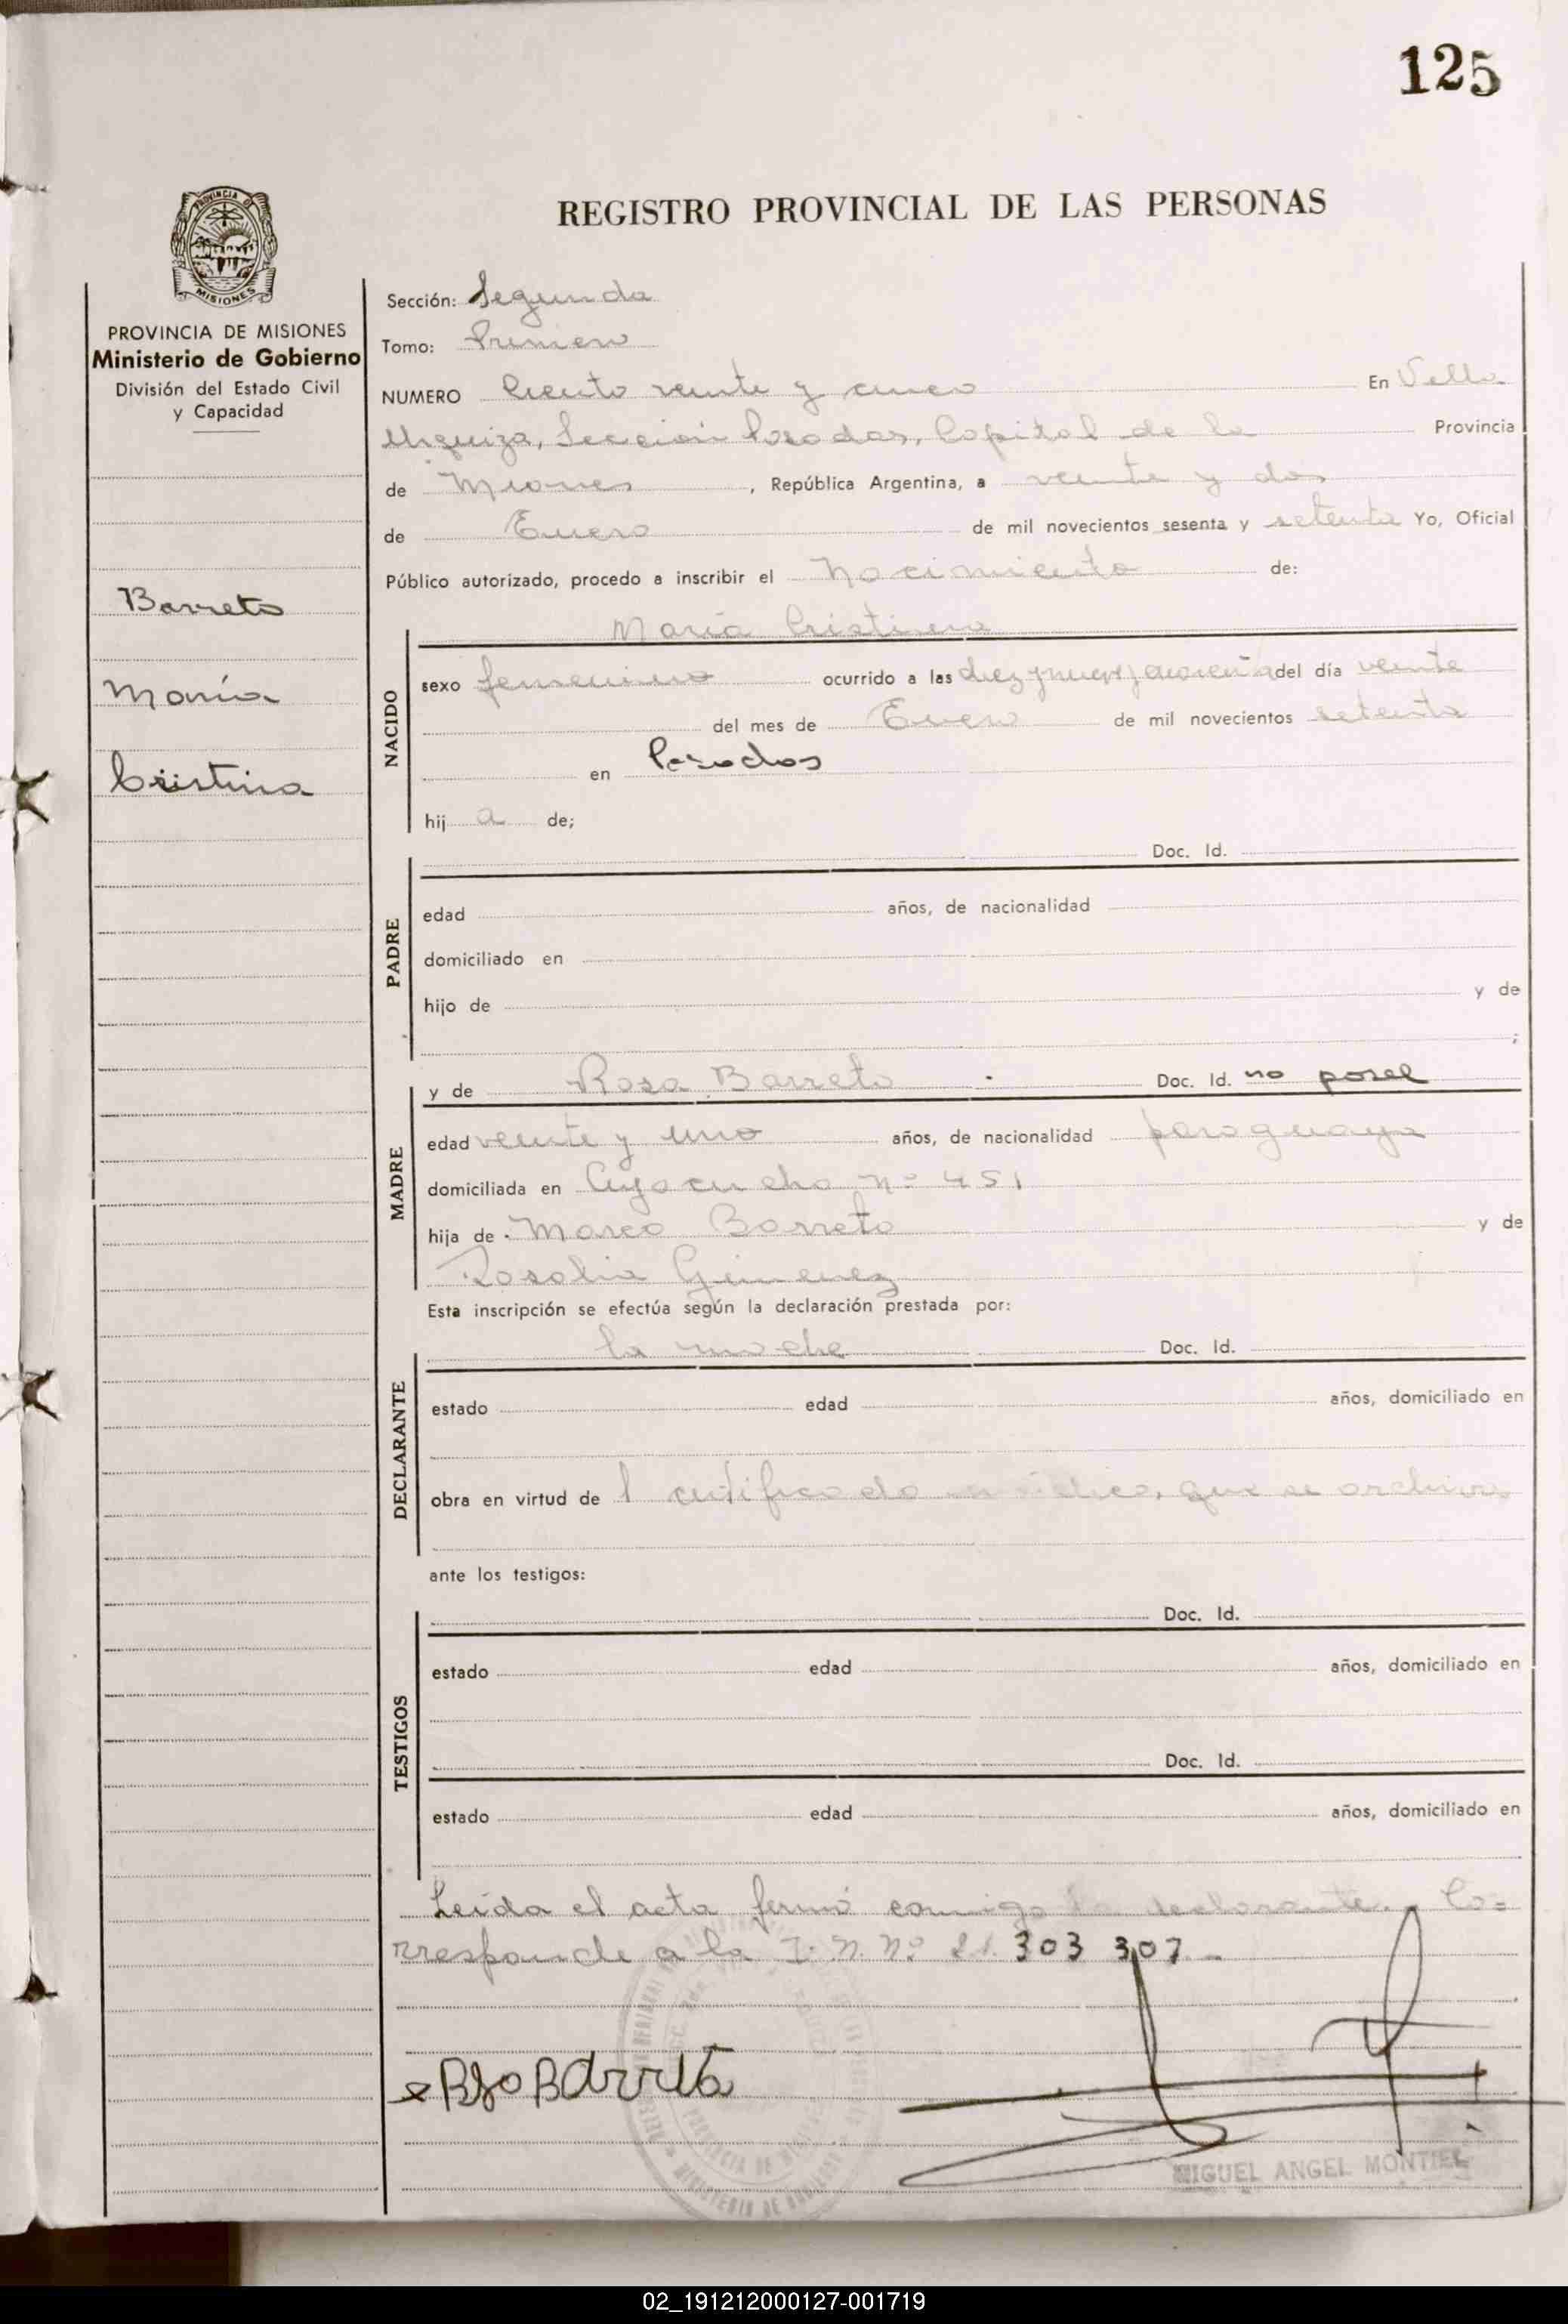 125
REGISTRO PROVINCIAL DE LAS PERSONAS
PROVINCIA DE MISIONES
Ministerio de Gobierno
División del Estado Civil
y Capacidad
Barreto
María
Cristina
Sección: Segunda
Tomo: Primero
NUMERO Ciento veinte y cinco En Villa
Urquiza, Sección Posadas, Capital de la Provincia
de Misiones, República Argentina, a veinte y dos
de Enero de mil novecientos sesenta y setenta Yo, Oficial
Público autorizado, procedo a inscribir el Nacimiento de:
María Cristina
NACIDO
sexo femenino ocurrido a las diez y nueve y cuarenta del día veinte
del mes de Enero de mil novecientos setenta
en Posadas
hij a de;
PADRE
Doc. Id.
edad años, de nacionalidad
domiciliado en
hijo de y de
;
MADRE
y de Rosa Barreto Doc. Id. no posee
edad veinte y uno años, de nacionalidad paraguaya
domiciliada en Ayacucho nº 451
hija de Marco Barreto y de
Rosalia Gimenez
Esta inscripción se efectúa según la declaración prestada por:
DECLARANTE
la madre Doc. Id.
estado edad años, domiciliado en
obra en virtud de l certificado médico, que se archiva
ante los testigos:
TESTIGOS
Doc. Id.
estado edad años, domiciliado en
Doc. Id.
estado edad años, domiciliado en
Leída el acta firmó conmigo la declarante. Co=
rresponde a la I. N. Nº 21.303 307.-
MIGUEL ANGEL MONTIEL
02_191212000127-001719